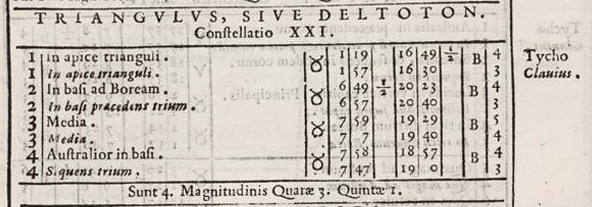 TRIANGVLVS, SIVE DELTOTON.
Constellatio XXI.
1 In apice trianguli. ♉ 1 19 16 49 ½ B 4 Tycho
1 In apice trianguli. 1 57 16 30 3 Clauius.
2 In basi ad Boream. ♉ 6 49 ½ 20 23 B 4
2 In basi præcedens trium. 6 57 20 40 3
3 Media. ♉ 7 59 19 29 B 5
3 Media. 7 7 19 40 4
4 Australior in basi. ♉ 7 58 18 57 B 4
4 Sequens trium. 7 47 19 0 3
Sunt 4. Magnitudinis Quaræ 3. Quintæ 1.